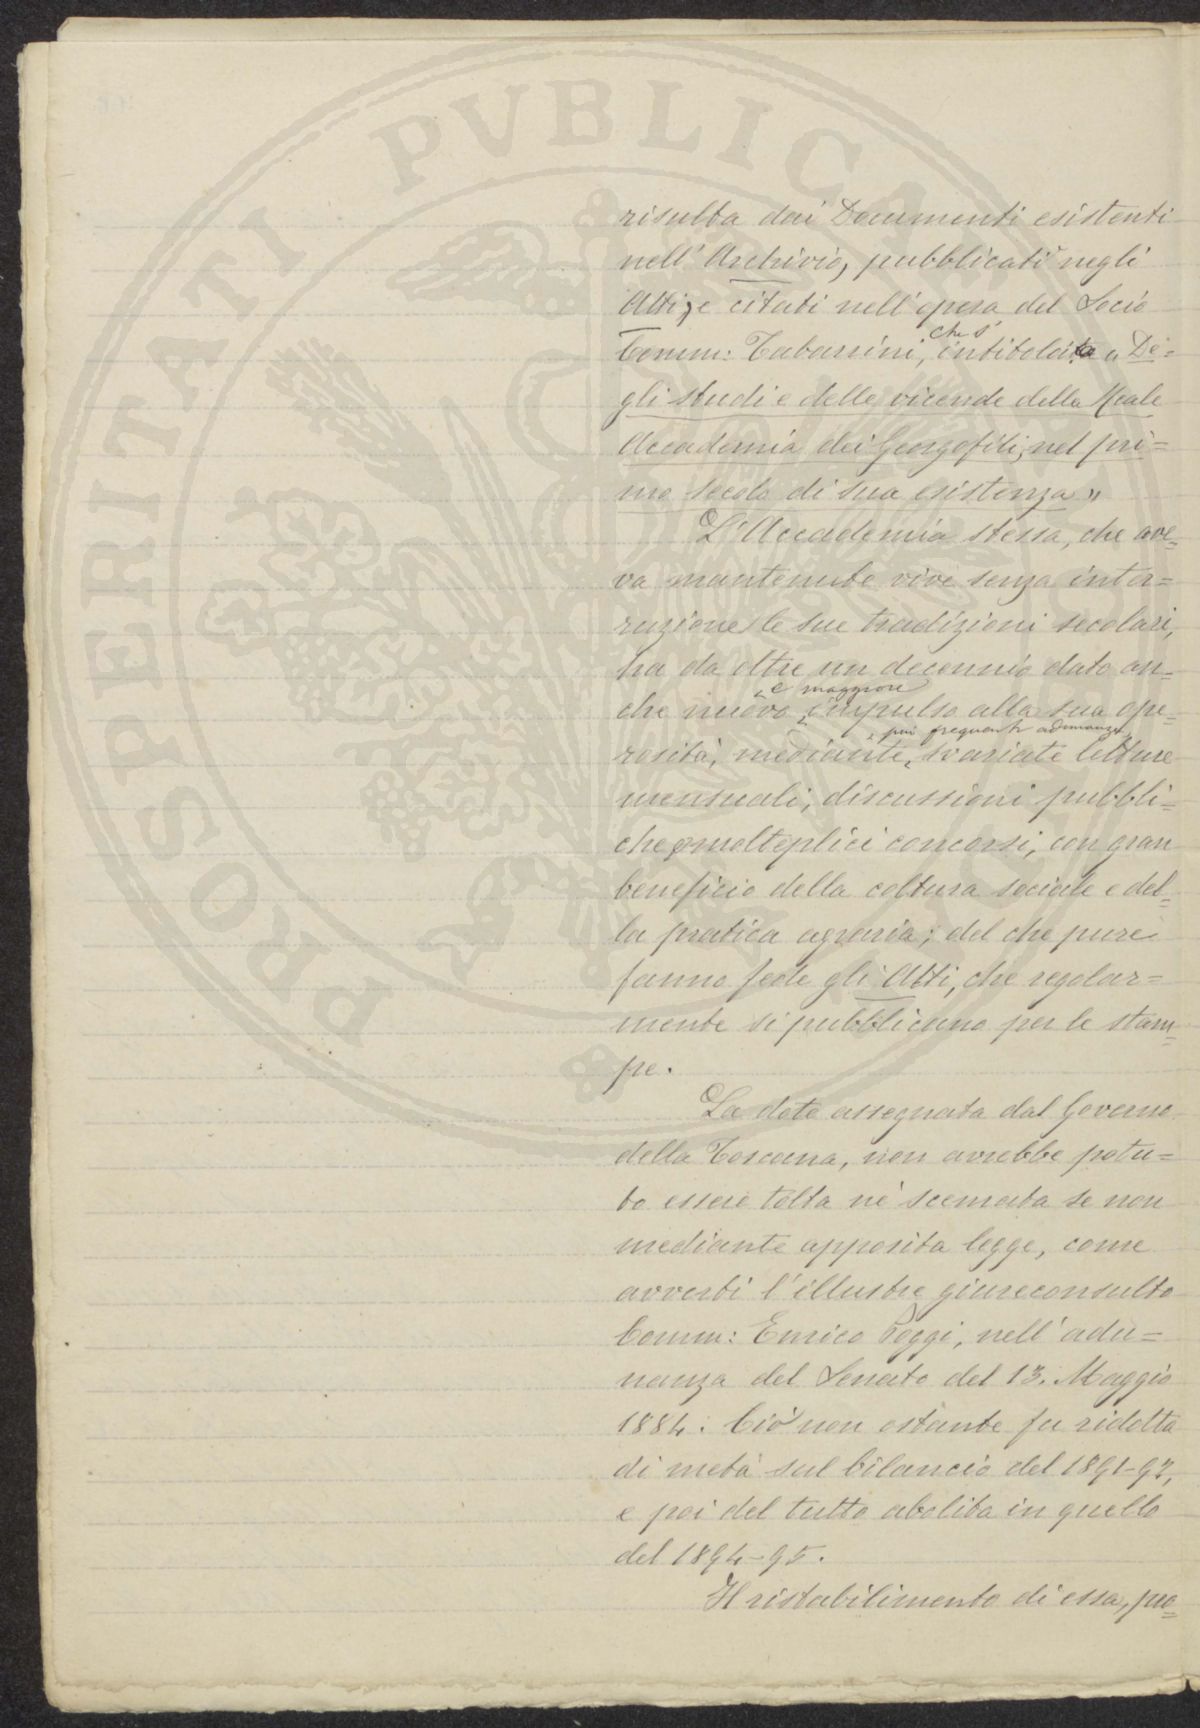 PROSPERITATI PVBLICAE
risulta dai Documenti esistenti
nell'Archivio, pubblicati negli
Atti, e citati nell'opera del Socio
Comm: Tabarrini, che s' intitola „ De=
gli studi e delle vicende della Reale
Accademia dei Georgofili, nel pri=
mo secolo di sua esistenza „
L'Accademia stessa, che ave=
va mantenute vive senza inter=
ruzione le sue tradizioni secolari,
ha da oltre un decennio dato an=
che nuovo e maggiore impulso alla sua ope=
rosità, mediante, più frequenti adunanze, svariate letture
mensuali, discussioni pubbli=
che, molteplici concorsi, con gran
beneficio della coltura sociale e del=
la pratica agraria; del che pure
fanno fede gli Atti, che regolar=
mente si pubblicano per le stam=
pe.
La dote assegnata dal Governo
della Toscana, non avrebbe potu=
to essere tolta nè scemata se non
mediante apposita legge, come
avvertì l'illustre giureconsulto
Comm: Enrico Poggi, nell'adu=
nanza del Senato del 13. Maggio
1884. Ciò non ostante fu ridotta
di metà sul bilancio del 1891-92,
e poi del tutto abolita in quello
del 1894-95.
Il ristabilimento di essa, pro=